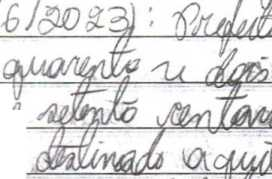 6/2023): Prefeit
quarenta e dois
setenta centavo
destinado a aqui